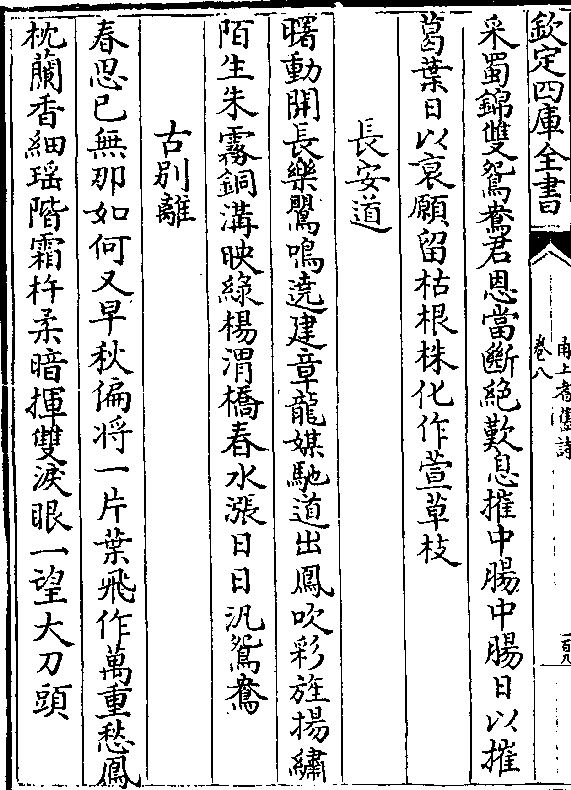 欽定四庫全書
卷八
采蜀錦雙鴛鴦君恩當斷絶歎息摧中腸中腸日以摧
葛葉日以哀願留枯根株化作萱草枝
長安道
曙動開長樂鸎鳴遶建章龍媒馳道出鳳吹彩旌揚繡
陌生朱霧銅溝映綠楊渭橋春水漲日日汎鴛鴦
古别離
春思已無那如何又早秋偏将一片葉飛作萬重愁鳳
枕蘭香細瑶階霜杵柔暗揮雙淚眼一望大刀頭